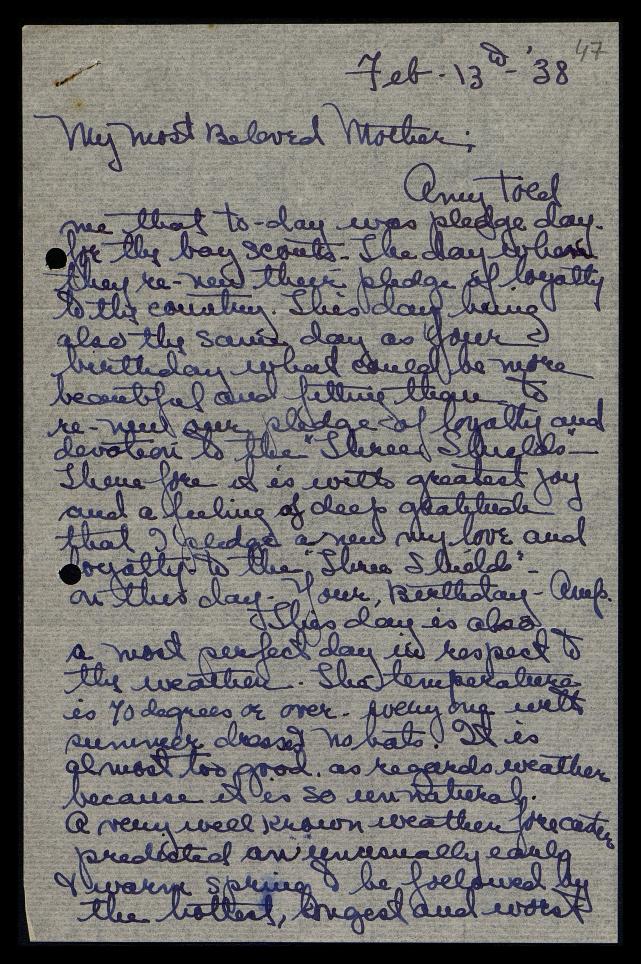 47
Feb - 13th - '38
My most Beloved Mother;
Amy Told
me that to-day was pledge day.
for the boy scouts - The day when
they re-new their pledge of loyalty
to the country. This day being
also the same day as your
birthday what could be more
beautiful and fitting than to
re-new our pledge of loyalty and
devotion to the "Three Shields" -
Therefore it is with greatest joy
and a feeling of deep gratitude
that I pledge anew my love and
loyalty to the "Three Shields" -
on this day - Your, Birthday -
This day is also
a most perfect day in respect to
the weather. The temperature
is 70 degrees or over - every one with
summer dresses no hats. It is
almost too good. as regards weather
because it is so unnatural.
A very well known weather forecaster
predicted an unusually early
& warm spring to be followed by
the hottest, longest and worst